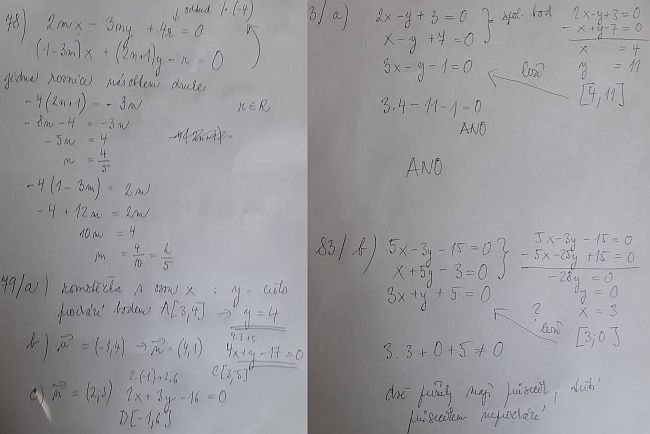 78) 2mx - 3my + 4r = 0
odtud /·(-4)
(1-3m)x + (2n+1)y - r = 0
jedna rovnice násobkem druhé
-4(2n+1) = -3n
r ∈ R
-8n - 4 = -3n
-5n = 4
n = 4/5
-4(1-3m) = 2m
-4 + 12m = 2m
10m = 4
m = 4/10 = 2/5
79/a) rovnoběžka s osou x : y = číslo
prochází bodem A[3,4] → y = 4
4.3+5
b) u = (-1,4) → n = (4,1) 4x + y - 17 = 0
C[3,5]
2.(-1)+2.6
c) n = (2;3) 2x + 3y - 16 = 0
D[-1,6]
3/a) 2x - y + 3 = 0
x - y + 7 = 0
spol. bod
3x - y - 1 = 0
leží
2x - y + 3 = 0
- x + y - 7 = 0
x = 4
y = 11
[4,11]
3.4 - 11 - 1 = 0
ANO
ANO
83/b) 5x - 3y - 15 = 0
x + 5y - 3 = 0
3x + y + 5 = 0
5x - 3y - 15 = 0
- 5x - 25y + 15 = 0
-28y = 0
y = 0
x = 3
? leží
[3;0]
3.3 + 0 + 5 ≠ 0
dvě přímky mají průsečík, třetí
průsečíkem neprochází